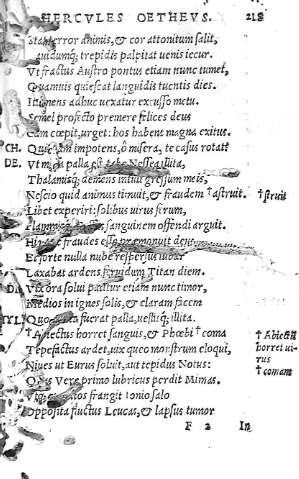 HERCVLES OETHEVS. 218
stat terror animis, & cor attonitum salit,
pauidumq; trepidis palpitat uenis iecur.
Vt fractus Austro pontus etiam nunc tumet,
Quamuis quiescat languidis uentis dies.
adhuc uexatur excusso metu.
Semel profecto premere felices deus
Cum coepit, urget: hos habent magna exitus.
CH. impotens, ô misera, te casus rotat?
DE. Vt palla est tabe Nessea illita,
Thalamisq; demens intuli gressum meis,
Nescio quid animus timuit, & fraudem †astruit. †struit
Libet experiri: solibus uirus ferum,
sanguinem offendi arguit.
fraudes esse praemonuit deus
Et forte nulla nube respersus iubar
Laxabat ardens feruidum Titan diem.
Vix ora solui patitur etiam nunc timor,
Medios in ignes solis, & claram facem
fuerat palla, uestisq; illita.
†Abiectus horret sanguis, & Phoebi †coma †Abiectū
Tepefactus ardet, uix queo monstrum eloqui, horret ui-
rus
Niues ut Eurus soluit, aut tepidus Notus: †comam
Vere primo lubricus perdit Mimas.
frangit Ionio salo
Opposita fluctus Leucas, & lapsus tumor
F 2 In